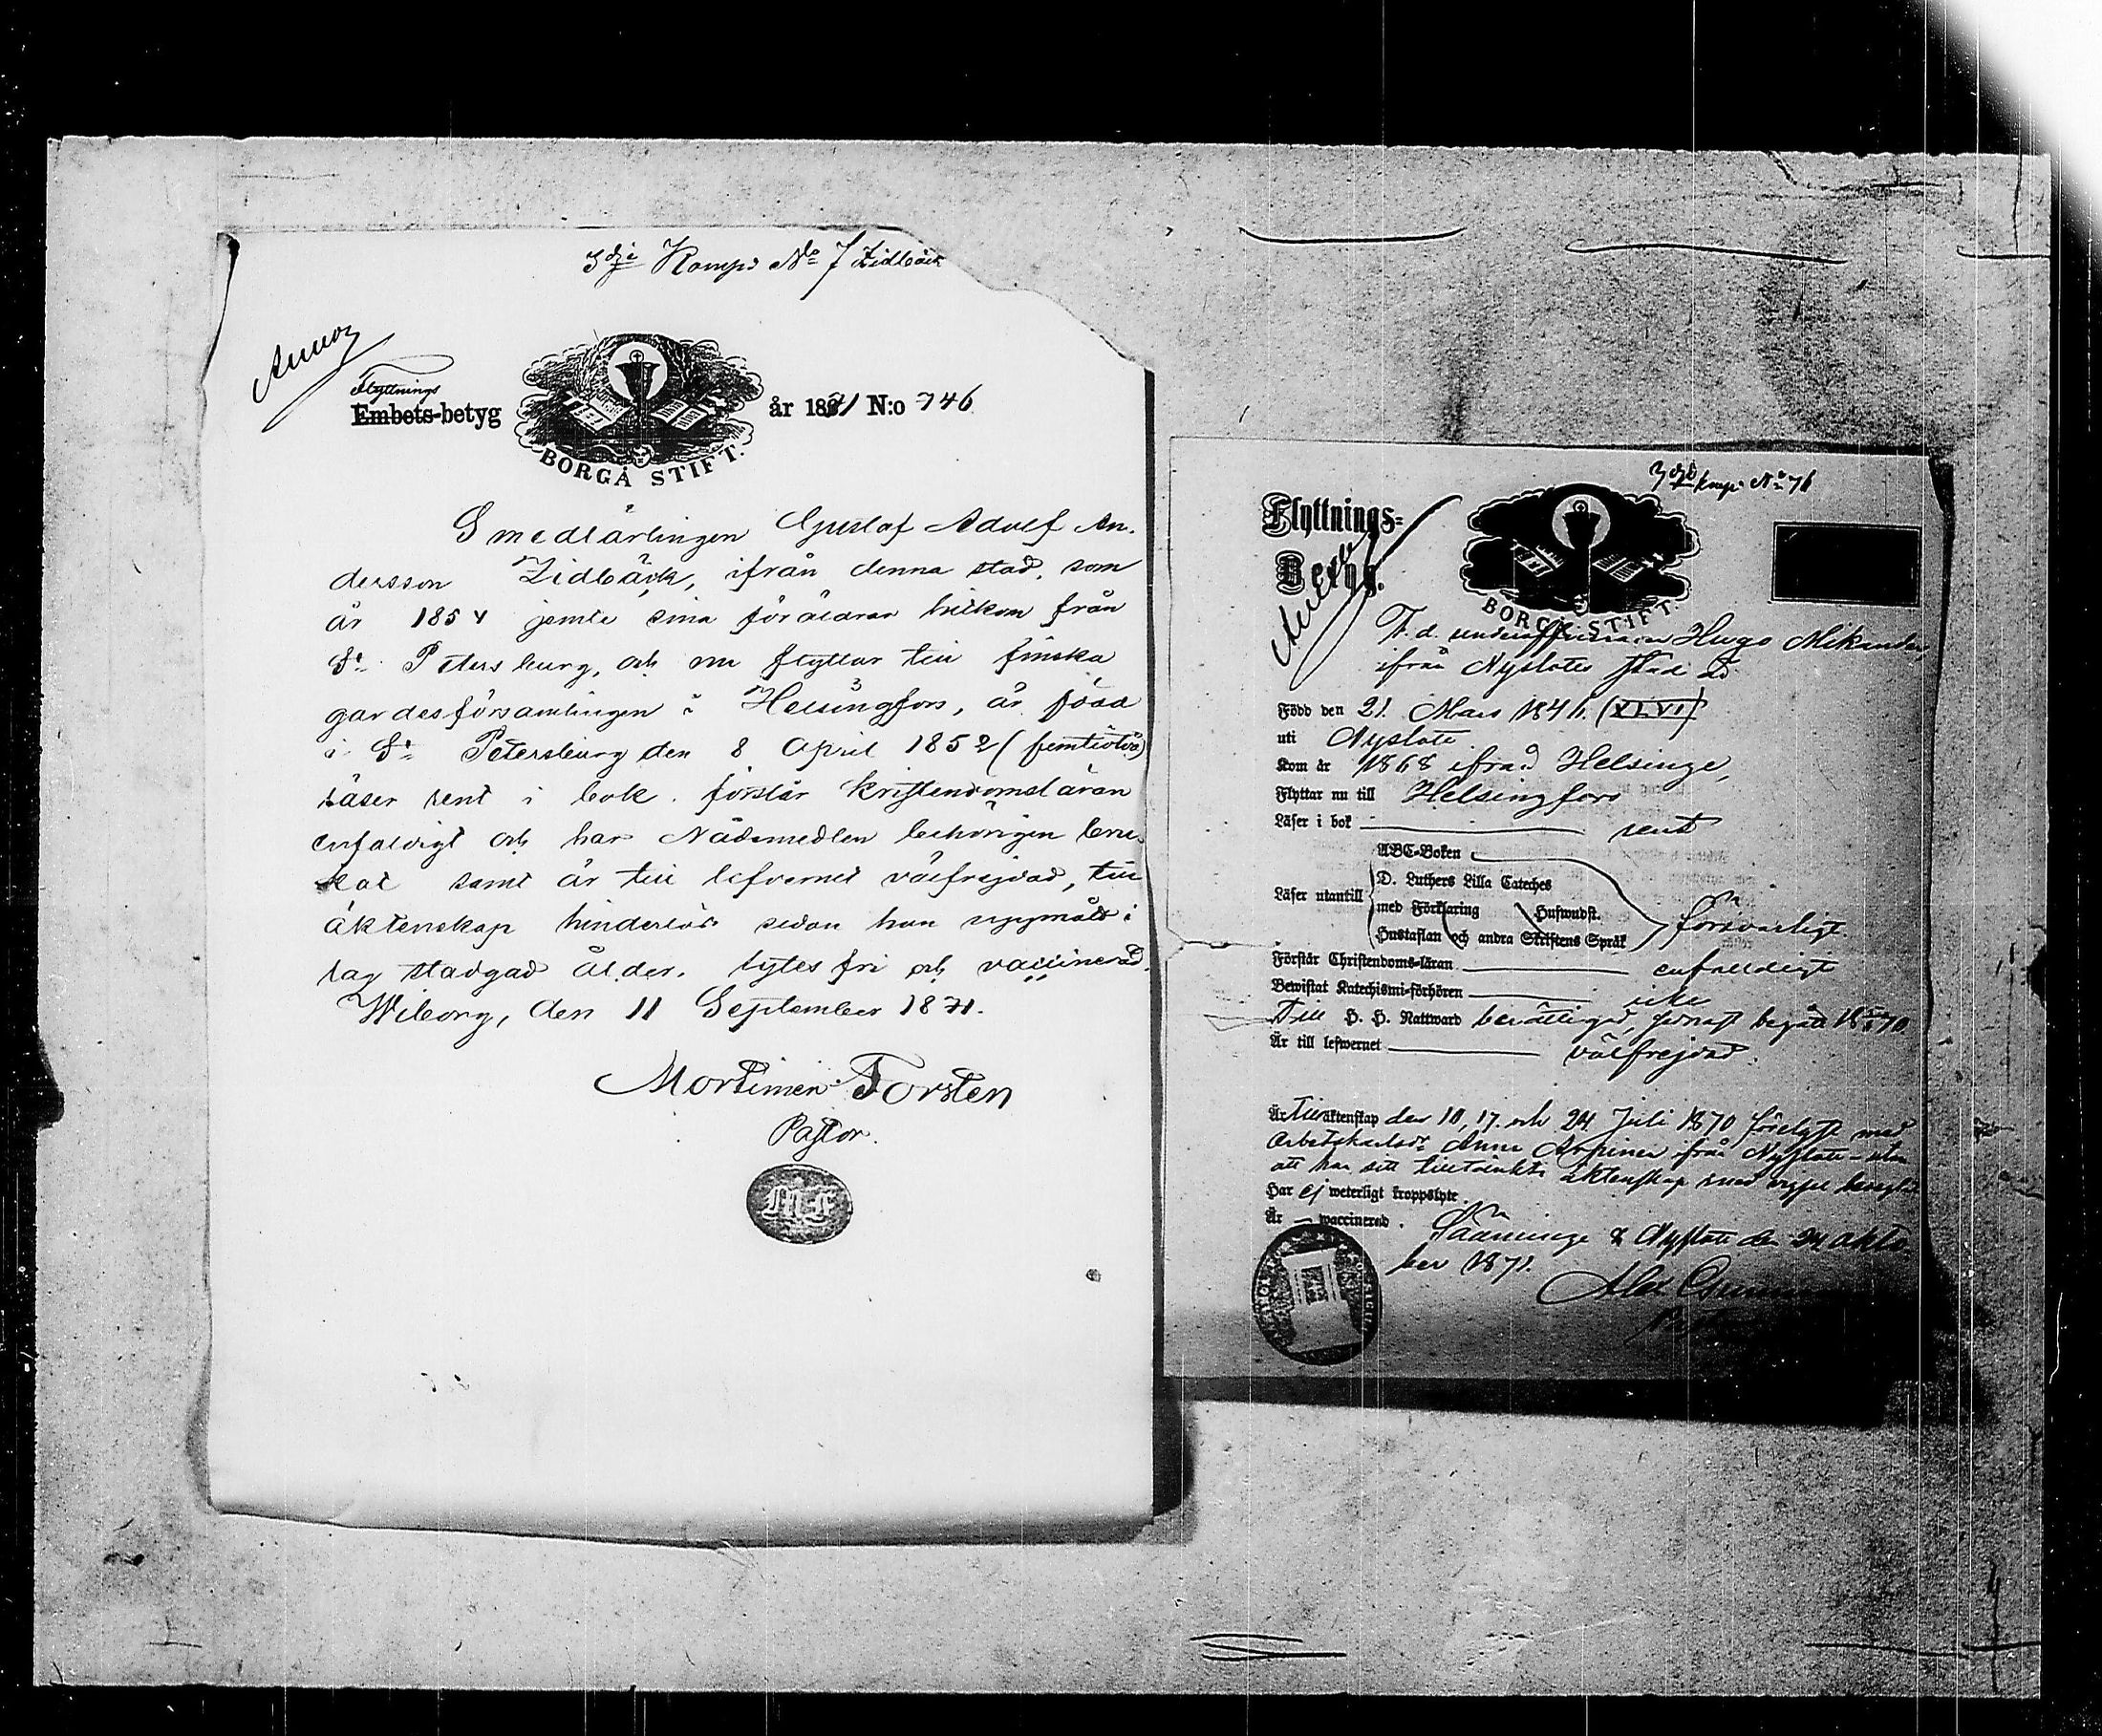 3dje Komp: No 7 Zidbäck
Annot
Flyttnings
Embets-betyg
år 1871 N:o 746
BORGÅ STIFT.
Smedlärlingen Gustaf Adolf An-
dersson Zidbäck, ifrån denna stad, som
år 1854 jemte sina föräldrar hitkom från
St. Petersburg, och nu flyttar till finska
gardesförsamlingen i Helsingfors, är född
i St. Petersburg den 8 April 1852 (femtiotvå)
läser rent i bok, förstår kristendomsläran
enfaldigt och har Nådemedlen behörigen bru-
kat samt är till lefvernet välfrejdad, till
äktenskap hinderlös sedan han uppnått i
lag stadgad ålder, lytes fri och vaccinerad.
Wiborg, den 11 September 1871.
Mortimer Forsten
Pastor.
M F
3dje Komp. No 76
Flyttnings-
Betyg.
BORGÅ STIFT.
F. d. underofficeraren Hugo Mikander,
ifrån Nyslotts stad
Född den 21 Mars 1846 (XLVI)
uti Nyslott
Kom år 1868 ifrån Helsinge,
Flyttar nu till Helsingfors
Läser i bok rent
ABC-Boken
D. Luthers Lilla Cateches
Läser utantill med Förklaring Huswudst. försvarligt.
Hustaflan och andra Skriftens Språk
Förstår Christendoms-läran enfaldigt
Bewistat Katechismi-förhören icke
Till H. H. Nattward berättigad, senast begått 18 70
Är till lefwernet välfrejdad.
Är till äktenskap den 10, 17 och 24 Juli 1870 förelyst med
arbetskarlsdr Anna Arpinen från Nyslott - utan
att han sitt tilltänkta äktenskap med
Har ej weterligt kroppslyte
Är — waccinerad. Sääminge & Nyslott den 24 Okto-
ber 1871.
Alex